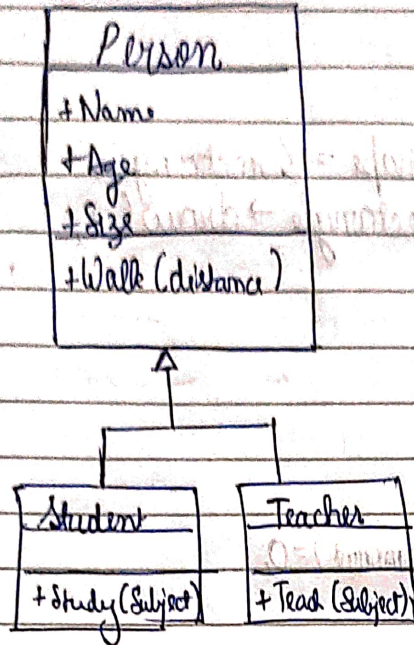 Person
+Name
+Age
+Size
+Walk (distance)
Student
+Study(Subject)
Teacher
+Teach (Subject)